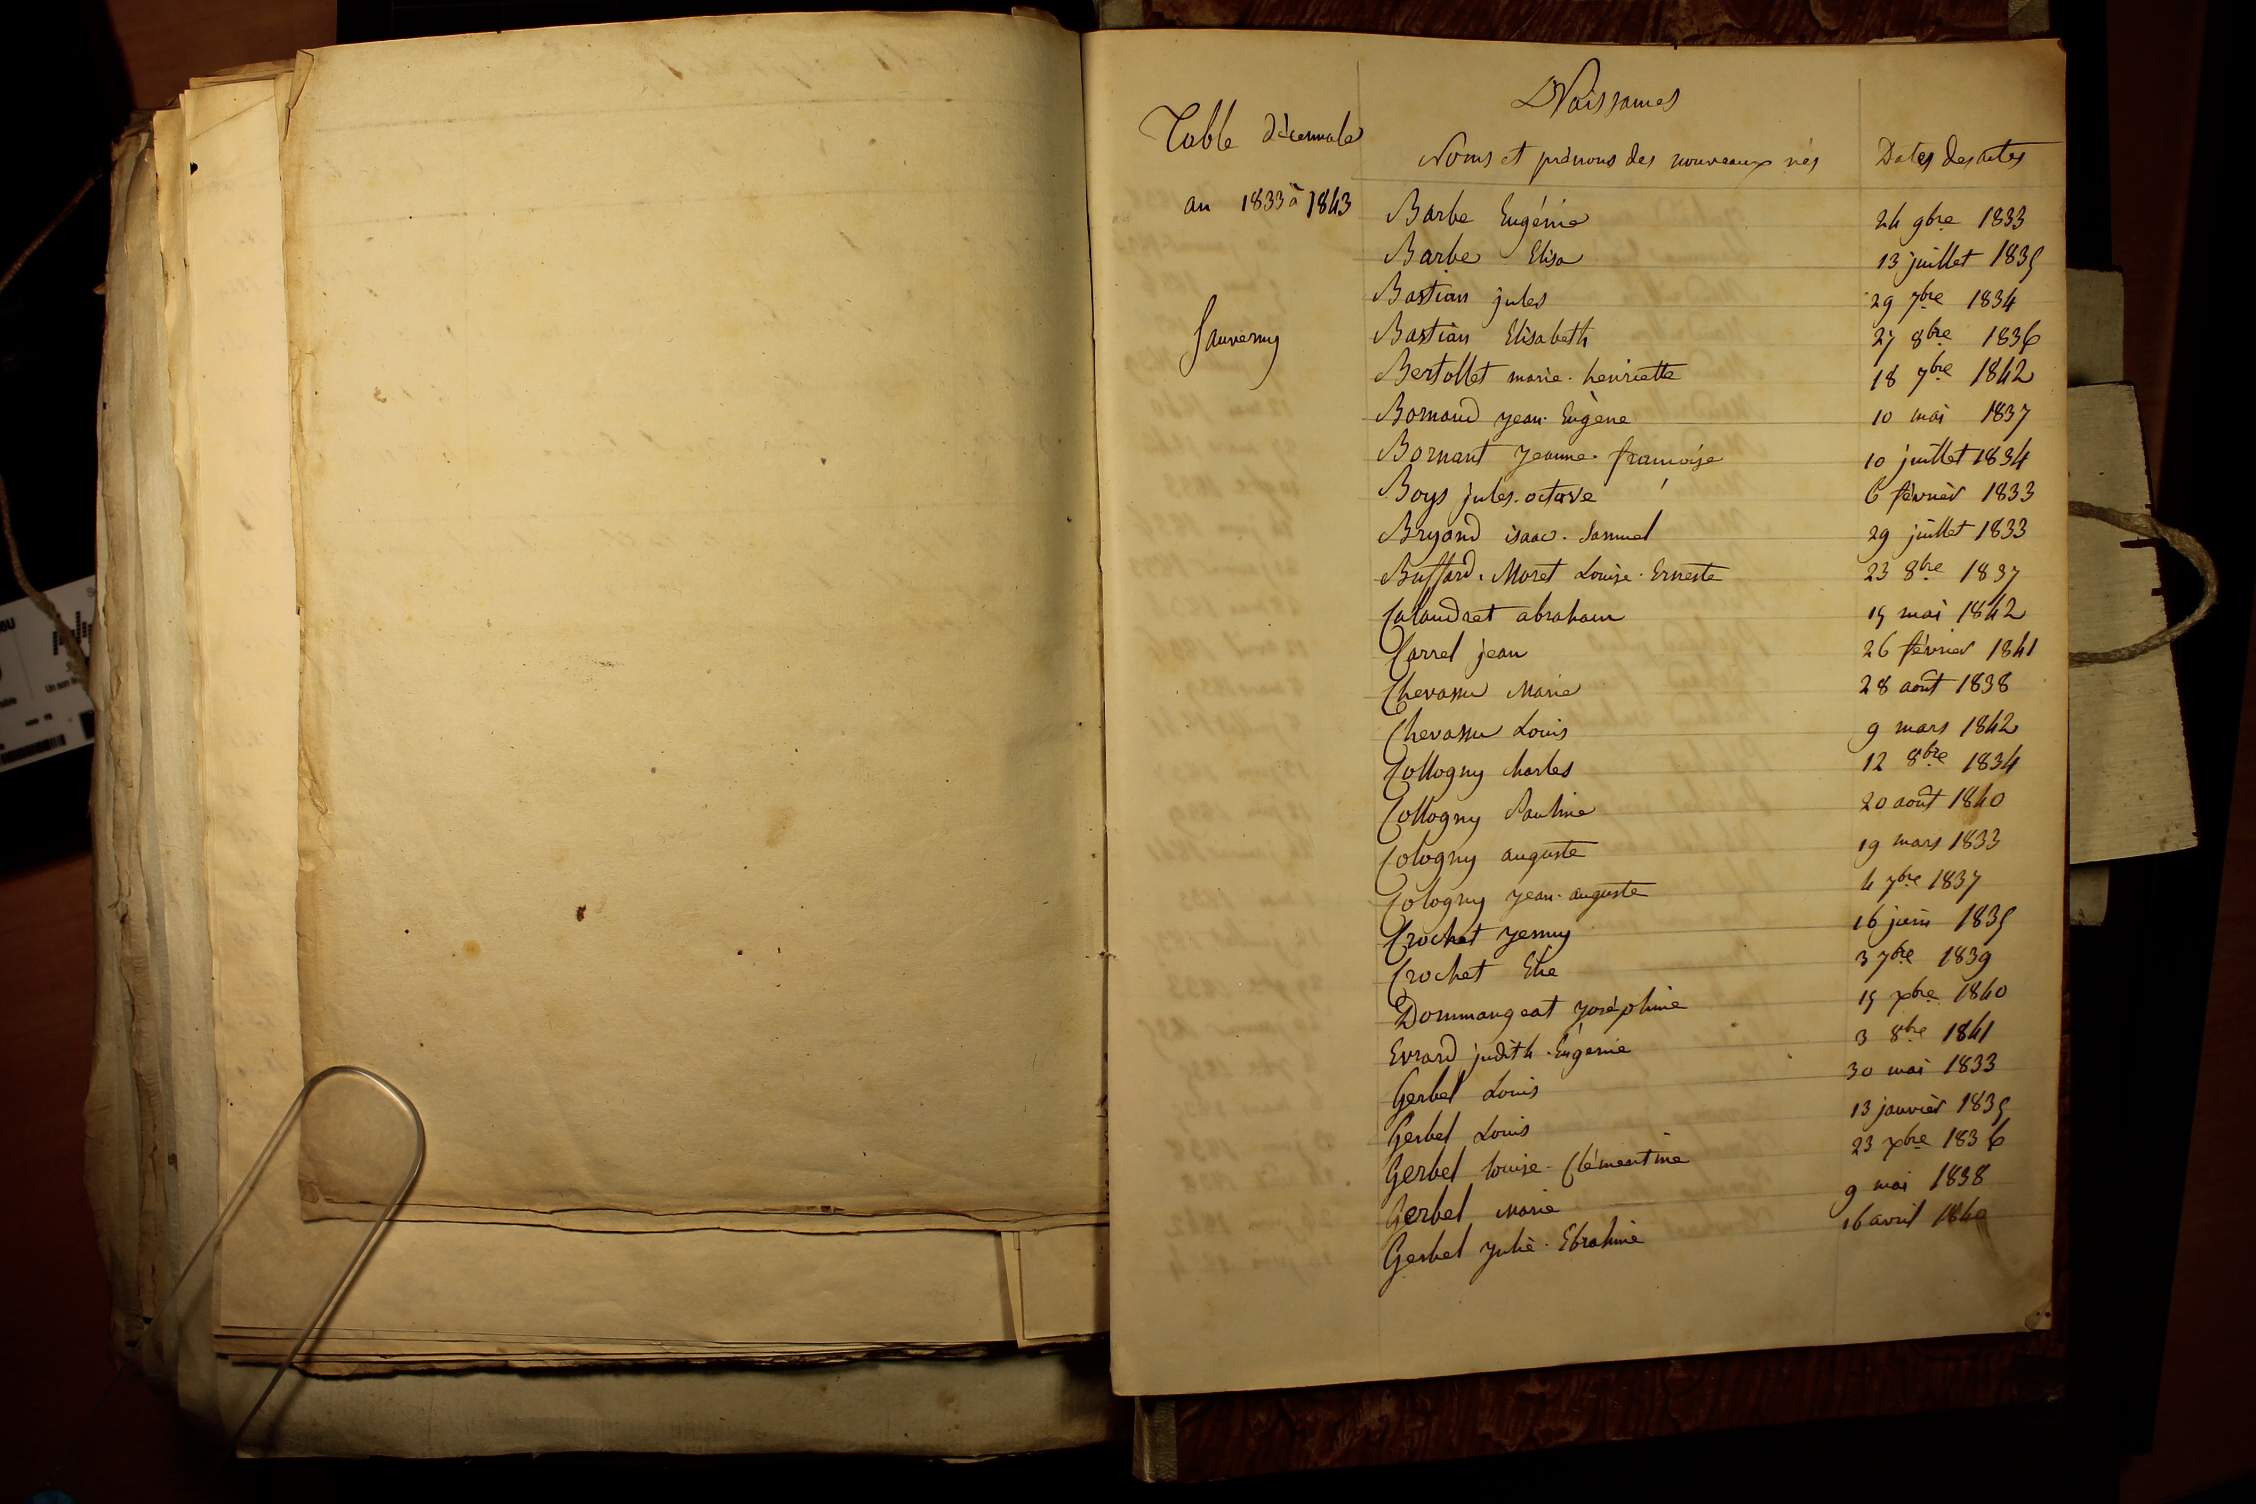 Table décennale
an 1833 à 1843
Sauverny
Naissances
Noms et prénoms des nouveaux nés Dates des actes
Barbe Eugénie 24 9bre 1833
Barbe Elisa 13 juillet 1835
Bastian jules 29 7bre 1834
Bastian Elisabeth 27 8bre 1836
Bertollet marie. henriette 18 7bre 1842
Bornand jean. Eugène 10 mai 1837
Bornant jeanne. françoise 10 juillet 1834
Boys jules. octave 6 février 1833
Bryand isaac. Samuel 29 juillet 1833
Buffard. Moret Louise. Erneste 23 8bre 1837
Calandret abraham 15 mai 1842
Carrel jean 26 février 1841
Chevassu Marie 28 août 1838
Chevassu Louis 9 mars 1842
Collogny charles 12 8bre 1834
Collogny Pauline 20 août 1840
Cologny auguste 19 mars 1833
Cologny jean. auguste 4 7bre 1837
Crochet jenny 16 juin 1835
Crochet Elie 3 7bre 1839
Dommangeat joséphine 15 xbre 1840
Evrard judith. Eugénie 3 8bre 1841
Gerbel Louis 30 mai 1833
Gerbel Louis 13 janvier 1835
Gerbel louise. Clémentine 23 xbre 1836
Gerbel Marie 9 mai 1838
Gerbel julie. 16 avril 1840